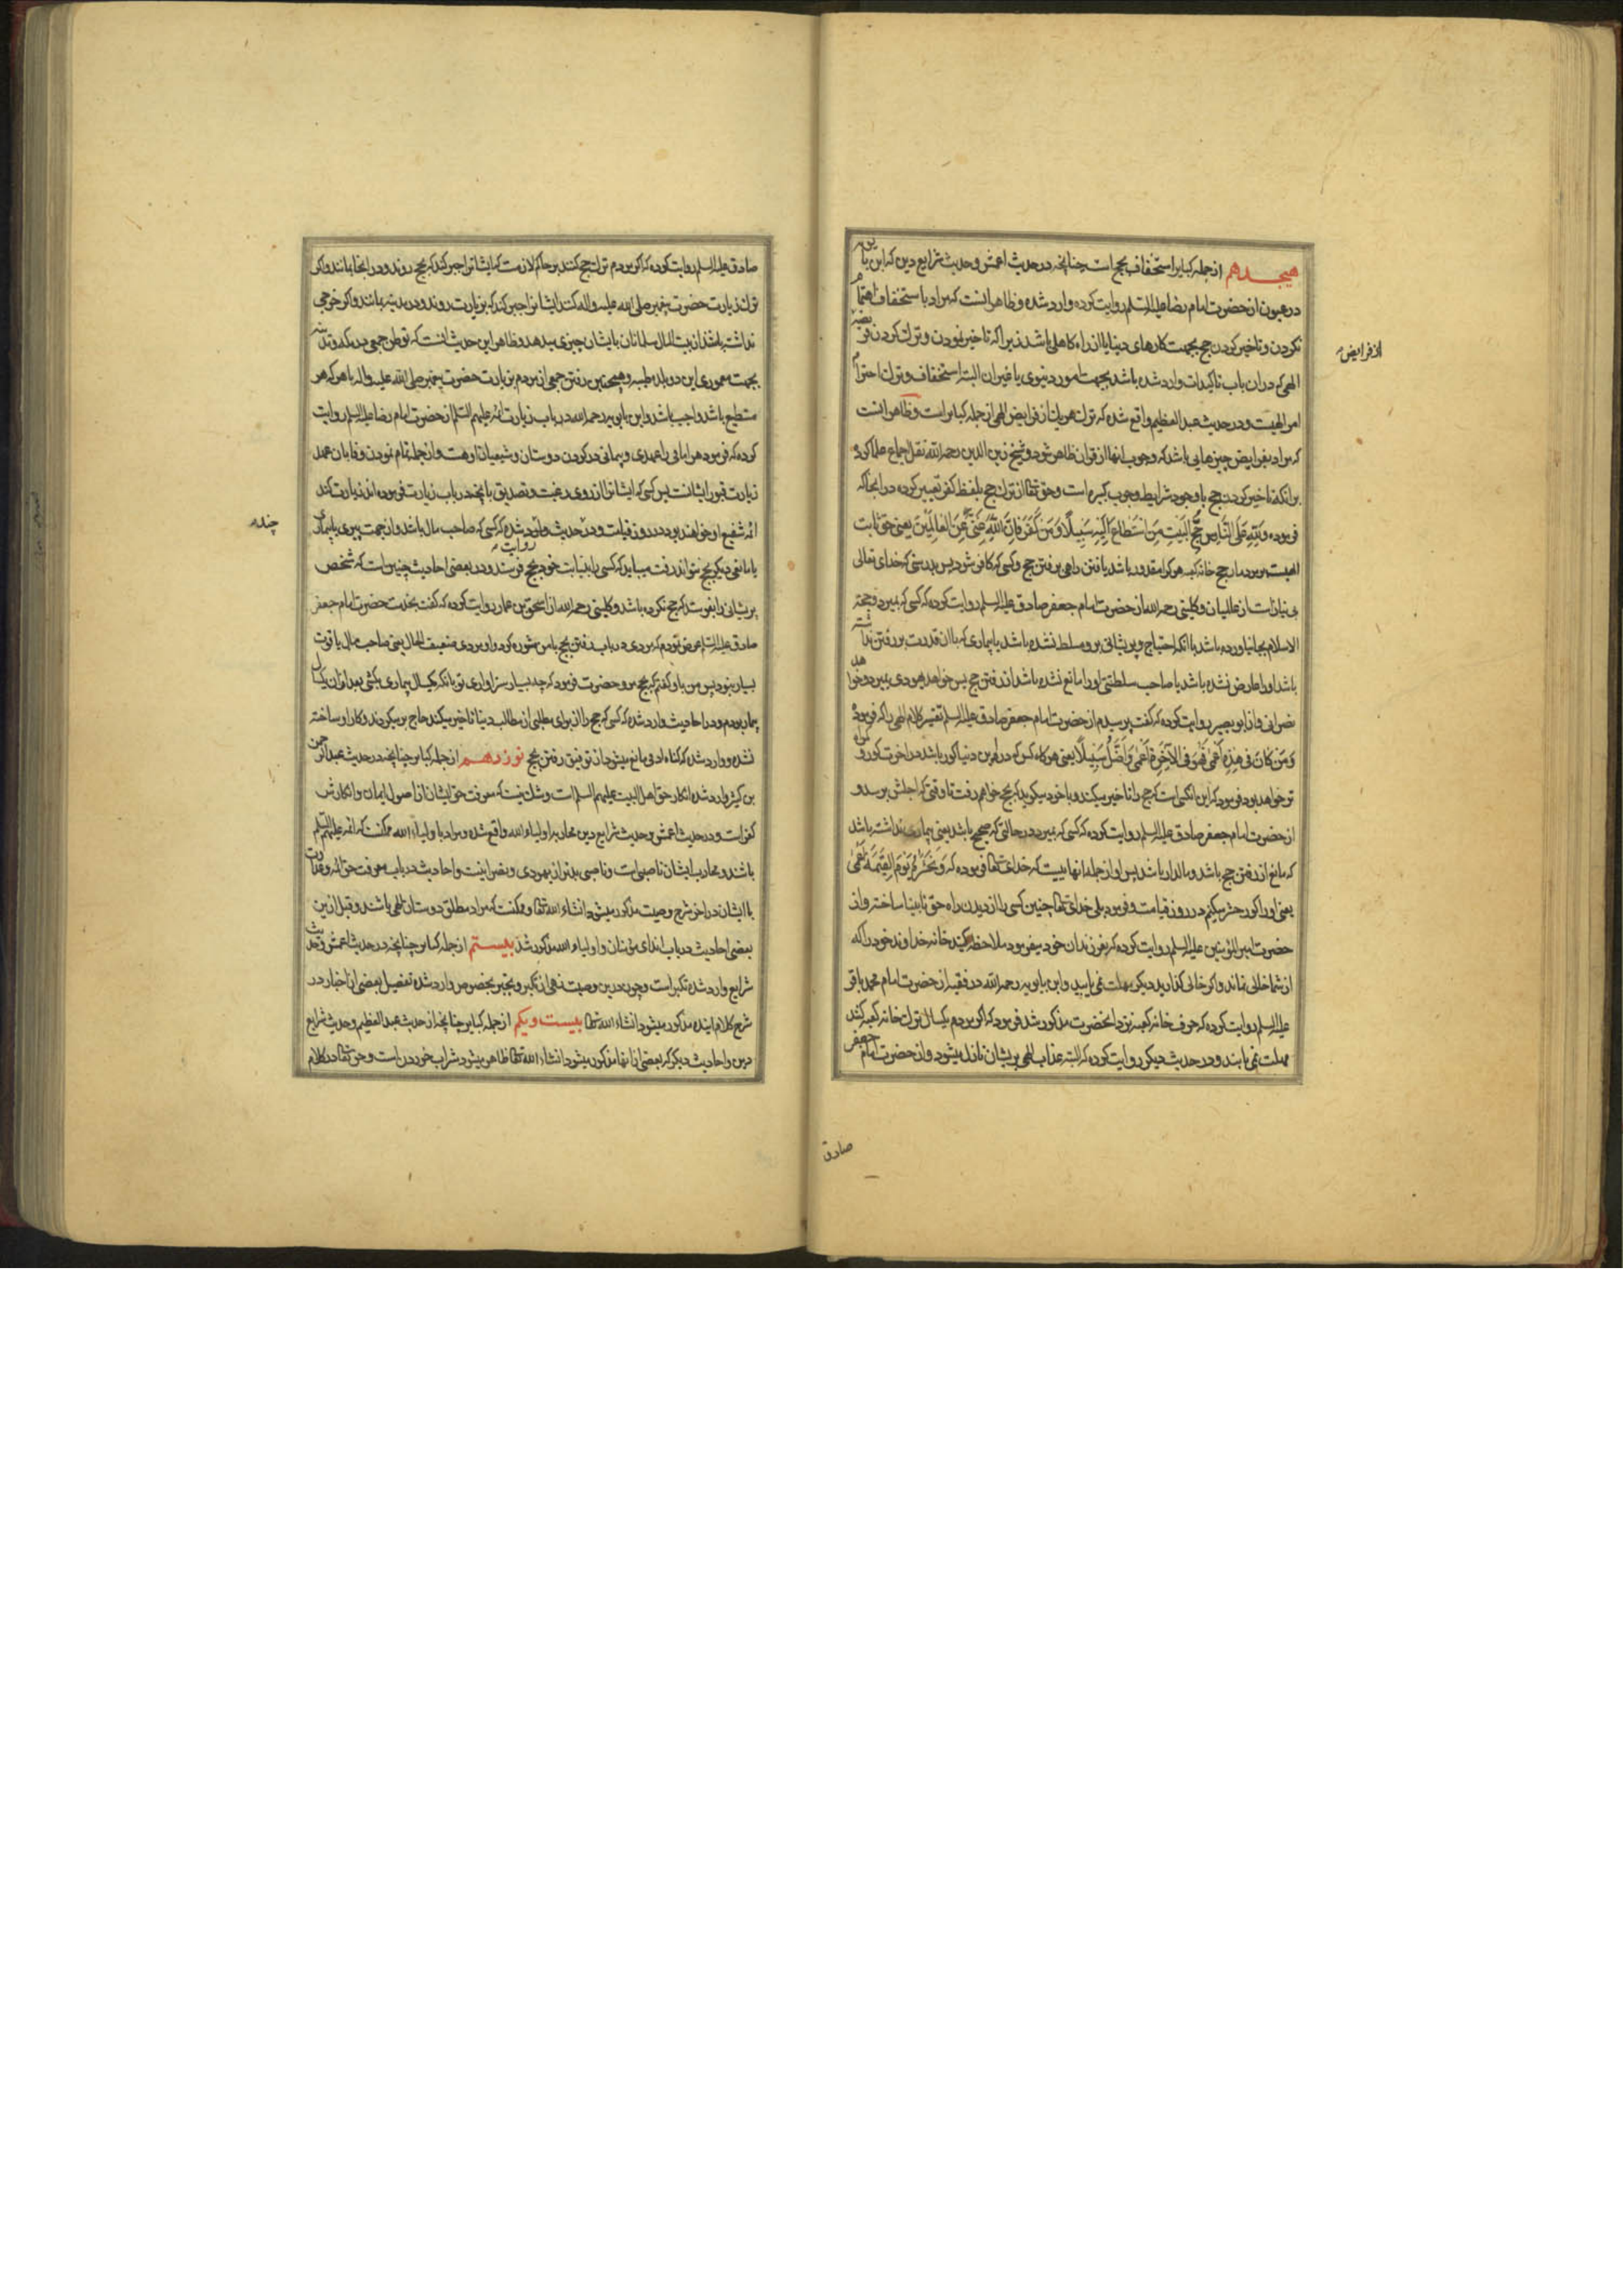 هیجدهم از جمله کبایر استخفاف بحج است چنانچه در حدیث اعمش و حدیث شرایع دین که ابن بابویه
در عیون از حضرت امام رضا علیه السلم روایت کرده وارد شده و ظاهر انست که مراد باستخفاف اهتمام
نکردن و تاخیر کردن حج بجهت کارهای دنیا یا از راه کاهلی باشد زیرا که تاخیر نمودن و ترك کردن فریضه
الهی که در ان باب تاکیدات وارد شده باشد بجهت امور دنیوی یا غیر ان البته استخفاف و ترك احترام
امر الهیست و در حدیث عبد العظیم واقع شده که ترك هر یك از فرایض الهی از جمله کبایر است و ظاهر انست
از فرایض
که مراد بفرایض چیزهایی باشد که وجوب انها از قران ظاهر شود و شیخ زین الدین رحمه الله نقل اجماع علما کرده
بر انکه تاخیر کردن حج با وجود شرایط وجوب کبیره است و حق تعالی از ترك حج بلفظ کفر تعبیر کرده در انجا که
فرموده وَلِلّٰهِ عَلَی النَّاسِ حِجُّ الْبَیْتِ مَنِ اسْتَطَاعَ اِلَیْهِ سَبِیلًا وَمَنْ کَفَرَ فَاِنَّ اللّٰهَ غَنِیٌّ عَنِ الْعَالَمِینَ یعنی حق ثابت
الهیست بر مردمان حج خانه کعبه هر کرا مقدور باشد یافتن راهی برفتن حج و کسی که کافر شود پس بدرستی که خدای تعالی
بی نیاز است از عالمیان و کلینی رحمه الله از حضرت امام جعفر صادق علیه السلم روایت کرده که کسی که بمیرد و حجة
الاسلام بجا نیاورده باشد با انکه احتیاج و پریشانی برو مسلط نشده باشد یا بیماری که با ان قدرت بر رفتن نداشته
باشد او را عارض نشده باشد یا صاحب سلطنتی او را مانع نشده باشد از رفتن حج پس خواهد یهودی بمیرد و خواهد
نصرانی و از ابو بصیر روایت کرده که گفت پرسیدم از حضرت امام جعفر صادق علیه السلم تفسیر کلام الهی را که فرموده
وَمَنْ کَانَ فِی هٰذِهِ اَعْمٰی فَهُوَ فِی الْآخِرَةِ اَعْمٰی وَاَضَلُّ سَبِیلًا یعنی هر کاه کس که در این دنیا کور باشد در اخرت کور و کمراه
تر خواهد بود فرمود که این انکسی است که حج را تاخیر میکند و با خود میکوید که بحج خواهم رفت تا وقتی که اجلش برسد و
از حضرت امام جعفر صادق علیه السلم روایت کرده که کسی که بمیرد در حالتی که صحیح باشد یعنی بیماری نداشته باشد
که مانع از رفتن حج باشد و مالدار باشد پس او از جمله انهاییست که خدای تعالی فرموده که وَنَحْشُرُهُ یَوْمَ الْقِیٰمَةِ اَعْمٰی
یعنی او را کور حشر میکنیم در روز قیامت و فرمود بلی خدای تعالی چنین کسی را از دیدن راه حق نابینا ساخته و از
حضرت امیر المؤمنین علیه السلم روایت کرده که بفرزندان خود میفرمود ملاحظه کنید خانه خداوند خود را که
از شما خالی نماند و اکر خالی کذارید دیکر مهلت نمی یابید و ابن بابویه رحمه الله در فقیه از حضرت امام محمد باقر
علیه السلم روایت کرده که حرف خانه کعبه نزد انحضرت مذکور شد فرمود که اکر مردم یکسال ترك خانه کعبه کنند
مهلت نمی یابند و در حدیث دیکر روایت کرده که البته عذاب الهی بر یشان نازل میشود و از حضرت امام جعفر
صادق
صادق علیه السلم روایت کرده که اکر مردم ترك حج کنند بر حاکم لازمست که ایشانرا جبر کند که بحج روند و در انجا بمانند و اکر
ترك زیارت حضرت پیغمبر صلی الله علیه واله کنند ایشانرا جبر کند که بزیارت روند و در مدینه بمانند و اکر خرجی
نداشته باشند از بیت المال مسلمانان بایشان چیزی بدهد و ظاهر این حدیث انست که توطن جمعی در مکه و مدینه
بجهت معموری این دو بلده طیبه و همچنین رفتن جمعی از مردم بزیارت حضرت پیغمبر صلی الله علیه واله با هر که هر
مستطیع باشد واجب باشد و ابن بابویه رحمه الله در باب زیارت ائمه علیهم السلم از حضرت امام رضا علیه السلم روایت
کرده که فرمود هر امامی را عهدی و پیمانی در کردن دوستان و شیعیان او هست و از جمله تمام نمودن وفا بان عهد
زیارت قبور ایشانست پس کسی که ایشانرا از روی رغبت و تصدیق بانچه در باب زیارت فرموده اند زیارت کند
ائمه شفیع او خواهند بود در روز قیامت و در حدیث وارد شده که کسی که صاحب مال باشد و از جهت پیری یا بیماری
چند
یا مانعی دیکر بحج نتواند رفت میباید که کسی را بنیابت خود بحج فرستد و در بعضی احادیث روایت چنین است که شخص
پریشانی را بفرستد که حج نکرده باشد و کلینی رحمه الله از اسحق بن عمار روایت کرده که گفت بخدمت حضرت امام جعفر
صادق علیه السلم عرض نمودم که مردی در باب رفتن بحج با من مشوره کرد و او مردی ضعیف الحال یعنی صاحب مال یا قوت
بسیار نبود پس من باو کفتم که بحج مرو حضرت فرمود که چه بسیار سزاواری تو بانکه یکسال بیماری بکشی بعد از ان یکسال
بیمار بودم و در احادیث وارد شده که کسی که حج را از برای مطلبی از مطالب دنیا تاخیر میکند حاج بر میکردند و کار او ساخته
نشده و وارد شده که کناه ادمی مانع میشود از توفیق رفتن بحج نوزدهم از جمله کبایر چنانچه در حدیث عبد الرحمن
بن کثیر وارد شده انکار حق اهل البیت علیهم السلم است و شك نیست که معرفت حق ایشان از اصول ایمان و انکارش
کفر است و در حدیث اعمش و حدیث شرایع دین محاربه اولیاء الله واقع شده و مراد باولیاء الله ممکنست که ائمه علیهم السلم
باشند و محارب ایشان ناصبی است و ناصبی بدتر از یهودی و نصرانیست و احادیث در باب معرفت حق ائمه و عداوت
با ایشان در اخر شرح وصیت مذکور میشود انشاء الله تعالی و ممکنست که مراد مطلق دوستان الهی باشند و قبل از ین
بعضی احادیث در باب ایذای مؤمنان و اولیاء الله مذکور شد بیستم از جمله کبایر چنانچه در حدیث اعمش و حدیث
شرایع وارد شده تکبر است و چون در ین وصیت نهی از تکبر و تجبر بخصوص وارد شده تفصیل بعضی از اخبار در
شرح کلام اینده مذکور میشود انشاء الله تعالی بیست و یکم از جمله کبایر چنانچه از حدیث عبد العظیم و حدیث شرایع
دین و احادیث دیکر که بعضی از انها مذکور میشود انشاء الله تعالی ظاهر میشود شراب خوردن است و حق تعالی در کلام